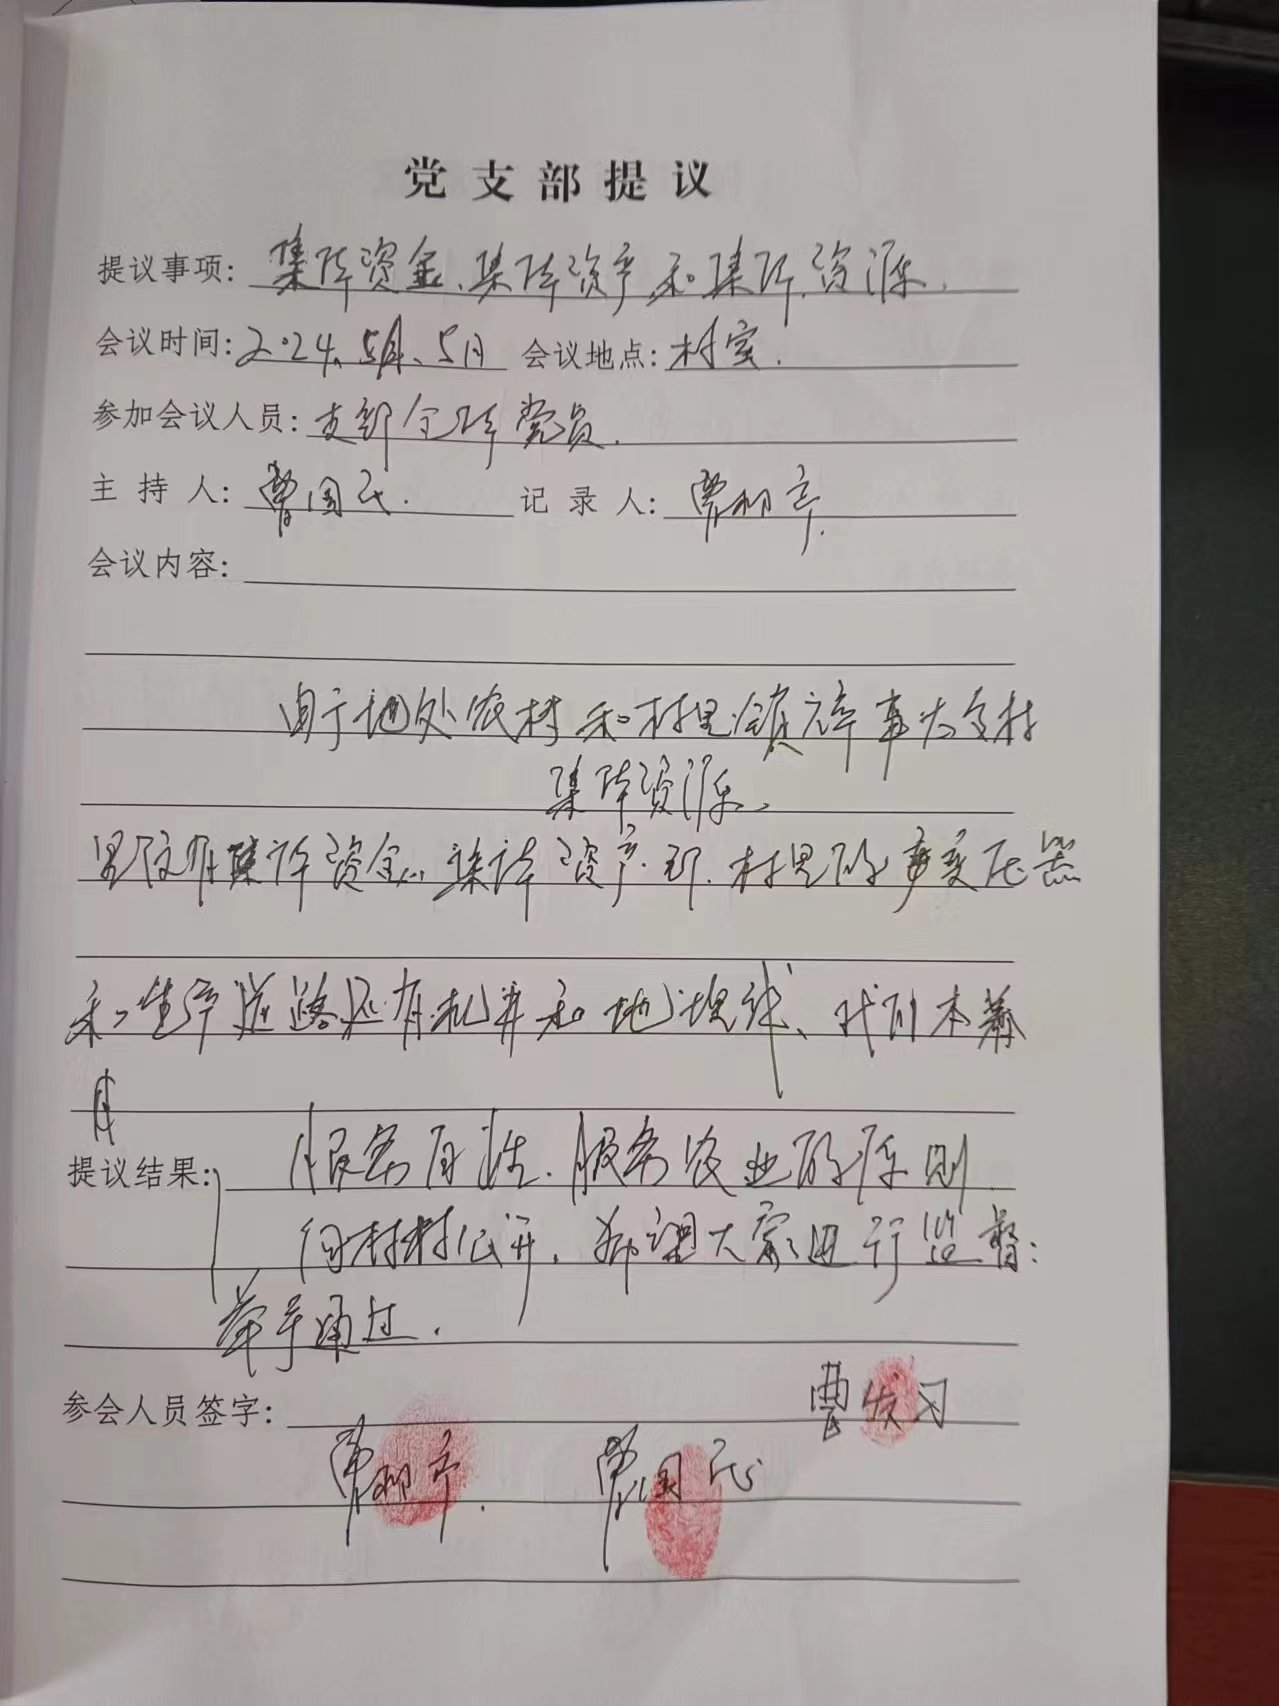 党支部提议
提议事项: 集体资金、集体资产和集体资源.
会议时间: 2024、5月、5日 会议地点: 村室.
参加会议人员: 支部全体党员.
主持人: 曹国民. 记录人: 曹
会议内容:
由于地处农村和村里 事 村
集体资源、
里没有集体资金、集体资产. 村里的 变压器
和生产道路还有机井和地埋线、我们本着
提议结果: 服务百姓. 服务农业的原则
向村村公开. 希望大家进行监督:
举手通过.
参会人员签字: 曹
曹 曹国民